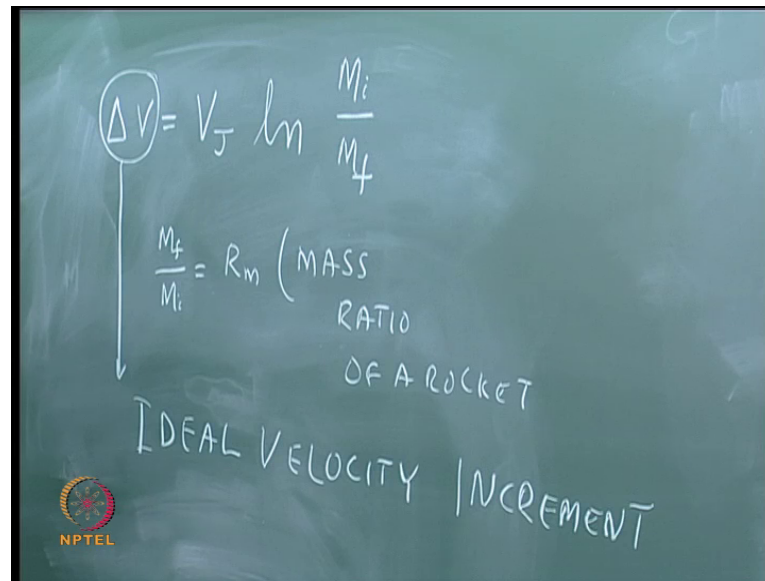 ΔV = V_J ln M_i / M_f
M_f / M_i = R_m ( MASS
RATIO
OF A ROCKET
IDEAL VELOCITY INCREMENT
NPTEL